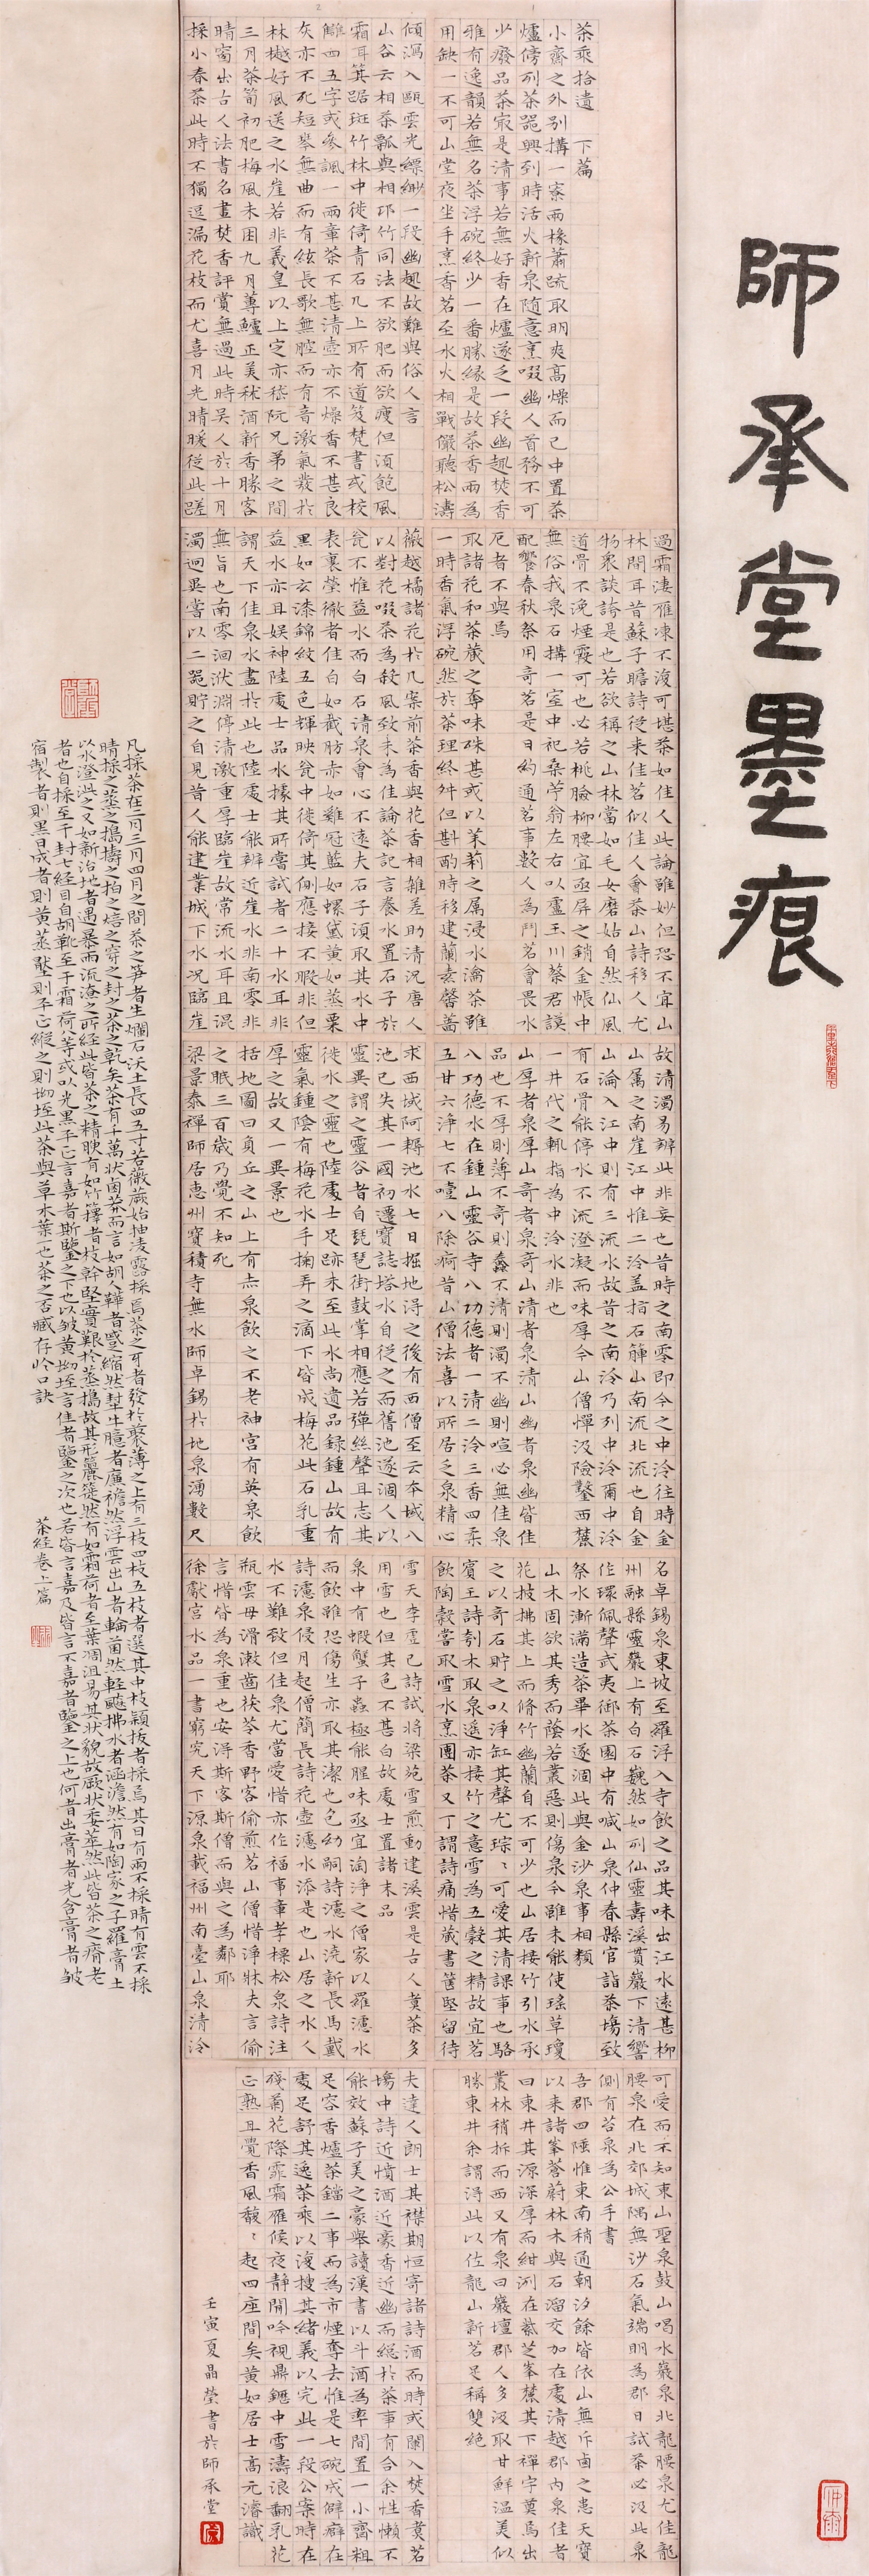 師承堂墨痕
茶乘拾遺　下篇
小齋之外別搆一寮兩椽蕭疏取明爽高燥而已中置茶
爐傍列茶器興到時活火新泉隨意烹啜幽人首務不可
少癈品茶寂是清事若無好香在爐遂乏一段幽趣焚香
雅有逸韻若無名茶浮碗終少一番勝緣是故茶香兩為
用缺一不可山堂夜坐手烹香茗至水火相戰儼聽松濤
傾瀉入甌雲光縹緲一段幽趣故難與俗人言
山谷云相茶瓢與相邛竹同法不欲肥而欲瘦但須飽風
霜耳箕踞斑竹林中徙倚青石几上所有道笈梵書或校
讎四五字或參諷一兩章茶不甚清壺亦不燥香不甚良
灰亦不死短琴無曲而有絃長歌無腔而有音激氣發於
林樾好風送之水崖若非義皇以上定亦嵇阮兄弟之間
三月茶筍初肥梅風未困九月蓴鱸正美秫酒新香勝客
晴窗出古人法書名畫焚香評賞無過此時吳人於十月
採小春茶此時不獨逗漏花枝而尤喜月光晴暖從此蹉
過霜淒雁凍不復可堪茶如佳人此論雖妙但恐不宜山
林間耳昔蘇子瞻詩從來佳茗似佳人會茶山詩移人尤
物衆談誇是也若欲稱之山林當如毛女麻姑自然仙風
道骨不浼煙霞可也必若桃臉柳腰宜亟屏之銷金帳中
無俗我泉石搆一室中祀桑苧翁左右以盧玉川蔡君謨
配饗春秋祭用奇茗是日約通茗事數人為鬥茗會畏水
厄者不與焉
取諸花和茶藏之奪味殊甚或以茉莉之屬浸水瀹茶雖
一時香氣浮碗然於茶理終舛但斟酌時移建蘭素馨薔
薇越橘諸花於几案前茶香與花香相雜差助清況唐人
以對花啜茶為殺風致未為佳論茶記言養水置石子於
瓮不惟益水而白石清泉會心不遠夫石子須取其水中
表裏瑩徹者佳白如截肪赤如雞冠藍如螺黛黃如蒸粟
黑如玄漆錦紋五色輝映瓮中徙倚其側應接不暇非但
益水亦且娛神陸處士品水據其所嘗試者二十水耳非
謂天下佳泉水盡於此也陸處士能辨近崖水非南零非
無旨也南零洄洑淵停清激重厚臨崖故常流水耳且混
濁迥異嘗以二器貯之自見昔人能建業城下水況臨崖
故清濁易辨此非妄也昔時之南零即今之中泠往時金
山屬之南崖江中惟二泠蓋指石簰山南流北流也自金
山淪入江中則有三流水故昔之南泠乃列中泠爾中泠
有石骨能停水不流澄凝而味厚今山僧憚汲險鑿西麓
一井代之輒指為中泠水非也
山厚者泉厚山奇者泉奇山清者泉清山幽者泉幽皆佳
品也不厚則薄不奇則蠢不清則濁不幽則喧必無佳泉
八功德水在鍾山靈谷寺八功德者一清二泠三香四柔
五甘六淨七不噎八除痾昔山僧法喜以所居乏泉精心
求西域阿耨池水七日掘地得之後有西僧至云本域八
池已失其一國初遷寶誌塔水自從之而舊池遂涸人以
靈異謂之靈谷者自琵琶街鼓掌相應若彈絲聲耳志其
徙水之靈也陸處士足跡未至此水尚遺品錄鍾山故有
靈氣鍾陰有梅花水手掬弄之滴下皆成梅花此石乳重
厚之故又一異景也
括地圖曰負丘之山上有赤泉飲之不老神宮有英泉飲
之眠三百歲乃覺不知死
梁景泰禪師居惠州寶積寺無水師卓錫於地泉湧數尺
名卓錫泉東坡至羅浮入寺飲之品其味出江水遠甚柳
州融縣靈巖上有白石巍然如列仙靈壽溪貫巖下清響
作環佩聲武夷御茶園中有喊山泉仲春縣官詣茶場致
祭水漸滿造茶畢水遂涸此與金沙泉事相類
山木固欲其秀而蔭若叢惡則傷泉今雖未能使瑤草瓊
花枝拂其上而脩竹幽蘭自不可少也山居接竹引水承
之以奇石貯之以淨缸其聲尤琮琮可愛其清課事也駱
賓王詩刳木取泉遥亦接竹之意雪為五穀之精故宜茗
飲陶穀嘗取雪水烹團茶又丁謂詩痛惜藏書篋堅留待
雪天李虛己詩試將梁苑雪煎動建溪雲是古人煑茶多
用雪也但其色不甚白故處士置諸末品
泉中有蝦蟹子蟲極能腥味亟宜淘淨之僧家以羅濾水
而飲雖恐傷生亦取其潔也包幼嗣詩濾水澆新長馬戴
詩濾泉侵月起僧簡長詩花壺濾水添是也山居之水人
水不難致但佳泉尤當愛惜亦作福事章孝標松泉詩注
瓶雲母滑漱齒茯苓香野客偷煎茗山僧惜淨牀夫言偷
言惜皆為泉重也安得斯客斯僧而與之為鄰耶
徐獻宮水品一書窮究天下源泉載福州南臺山泉清泠
可愛而不知東山聖泉鼓山喝水巖泉北龍腰泉尤佳龍
腰泉在北郊城隅無沙石氣端明為郡日試茶必汲此泉
側有苔泉為公手書
吾郡四陲惟東南稍通朝汐餘皆依山無斥鹵之患天寶
以來諸峯蒼蔚林木與石溜交加在處清越郡內泉佳者
曰東井其源深厚而紺洌在紫芝峯麓其下禪宇奠焉出
叢林稍拆而西又有泉曰巖壇郡人多汲取甘鮮温美似
勝東井余謂得此以佐龍山新茗足稱雙絶
夫達人朗士其襟期恒寄諸詩酒而時或闌入焚香煑茗
場中詩近憤酒近豪香近幽而總於茶事有合余性懶不
能效蘇子美之豪舉讀漢書以斗酒為率間置一小齋粗
足容香爐茶鐺二事而為市煙奪去惟是七碗成僻癖在
處足舒其逸茶乘以復搜其緒義以完此一段公案時在
殘菊花際霏霜雁候夜静閒吟視鼎鐺中雪濤浪翻乳花
正熟且覺香風馥馥起四座間矣黃如居士高元濬識
壬寅夏晶瑩書於師承堂
凡採茶在二月三月四月之間茶之筍者生爛石沃土長四五寸若薇蕨始抽凌露採焉茶之牙者發於藂薄之上有三枝四枝五枝者選其中枝穎拔者採焉其日有雨不採晴有雲不採
晴採之蒸之搗擣之拍之焙之穿之封之茶之乾矣茶有千萬狀鹵莽而言如胡人鞾者蹙縮然犎牛臆者廉襜然浮雲出山者輪菌然輕飈拂水者涵澹然有如陶家之子羅膏土
以水澄泚之又如新治地者遇暴雨流淹之所經此皆茶之精腴有如竹籜者枝幹堅實艱於蒸搗故其形籭簁然有如霜荷者至葉凋沮易其狀貌故厥狀委萃然此皆茶之瘠老
者也自採至于封七經目自胡靴至于霜荷八等或以光黑平正言嘉者斯鑒之下也以皱黃坳垤言佳者鑒之次也若皆言嘉及皆言不嘉者鑒之上也何者出膏者光含膏者皱
宿製者則黑日成者則黃蒸壓則平正縱之則坳垤此茶與草木葉一也茶之否臧存於口訣
茶經卷上篇